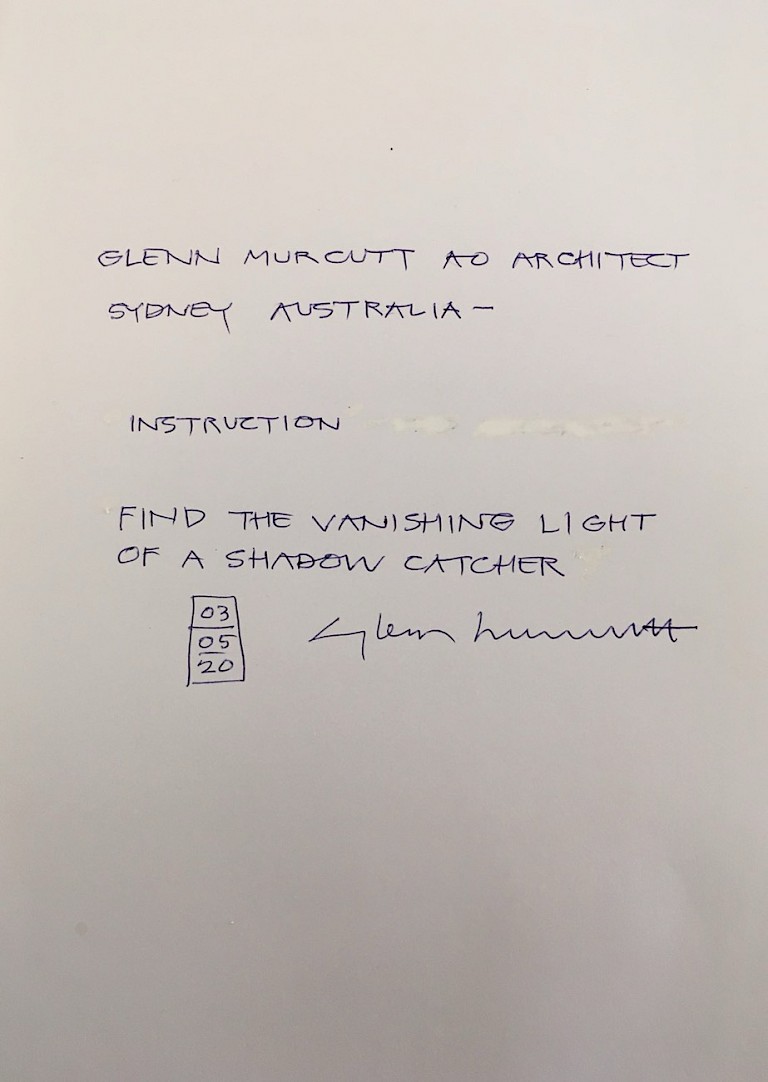 GLENN MURCUTT AO ARCHITECT
SYDNEY AUSTRALIA –
INSTRUCTION
FIND THE VANISHING LIGHT
OF A SHADOW CATCHER
03
05
20
Glenn Murcutt